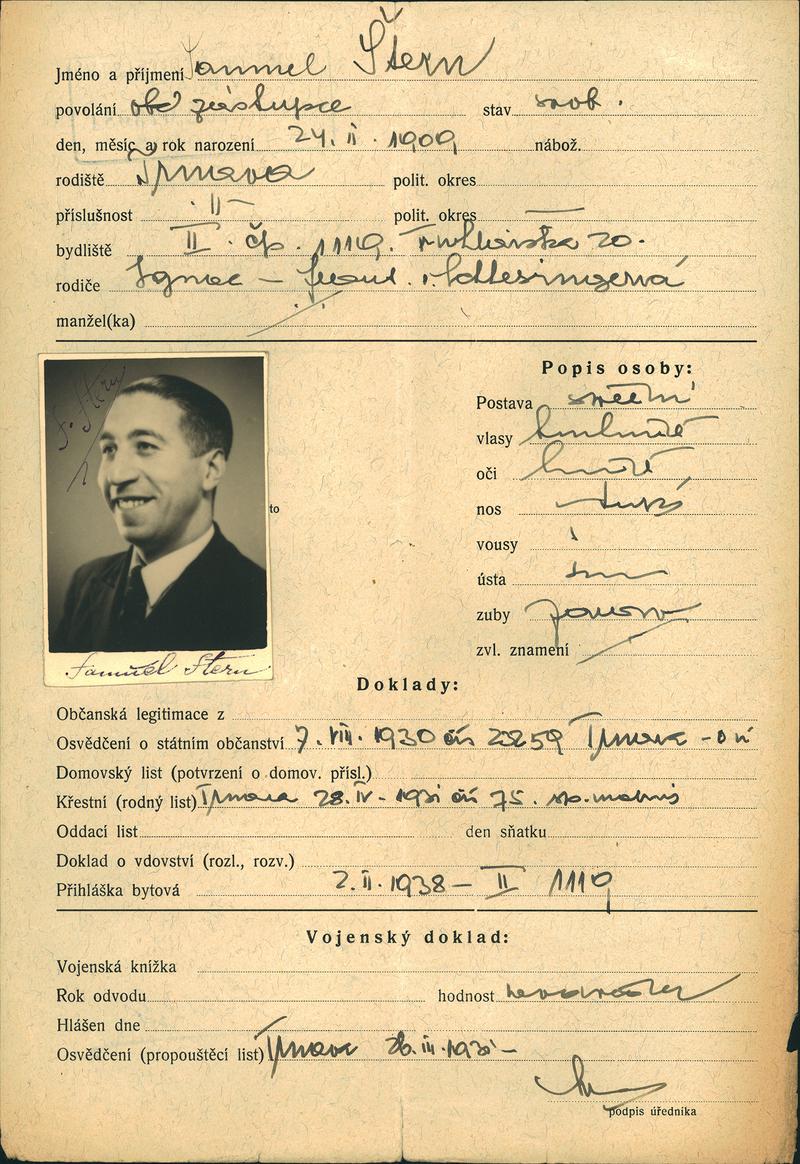 Jméno a příjmení Samuel Štern
povolání obch zástupce stav svob.
den, měsíc a rok narození 24. II. 1909 nábož.
rodiště Trnava polit. okres
příslušnost -II- polit. okres —
bydliště II. čp. 1119. Truhlářská 20.
rodiče Ignac – roz. Schlesingerová
manžel(ka)
Popis osoby:
Postava střední
vlasy
oči hnědé
nos
vousy
ústa
zuby
zvl. znamení
to
F. Stern
Samuel Stern
Doklady:
Občanská legitimace z
Osvědčení o státním občanství 7. VIII. 1930 čís 22259 Trnava
Domovský list (potvrzení o domov. přísl.)
Křestní (rodný list) Trnava 28. IV. 1931 čís 75.
Oddací list den sňatku
Doklad o vdovství (rozl., rozv.)
Přihláška bytová 2. II. 1938 – II 1119
Vojenský doklad:
Vojenská knížka
Rok odvodu hodnost neodveden
Hlášen dne
Osvědčení (propouštěcí list) Trnava 26. III.
podpis úředníka